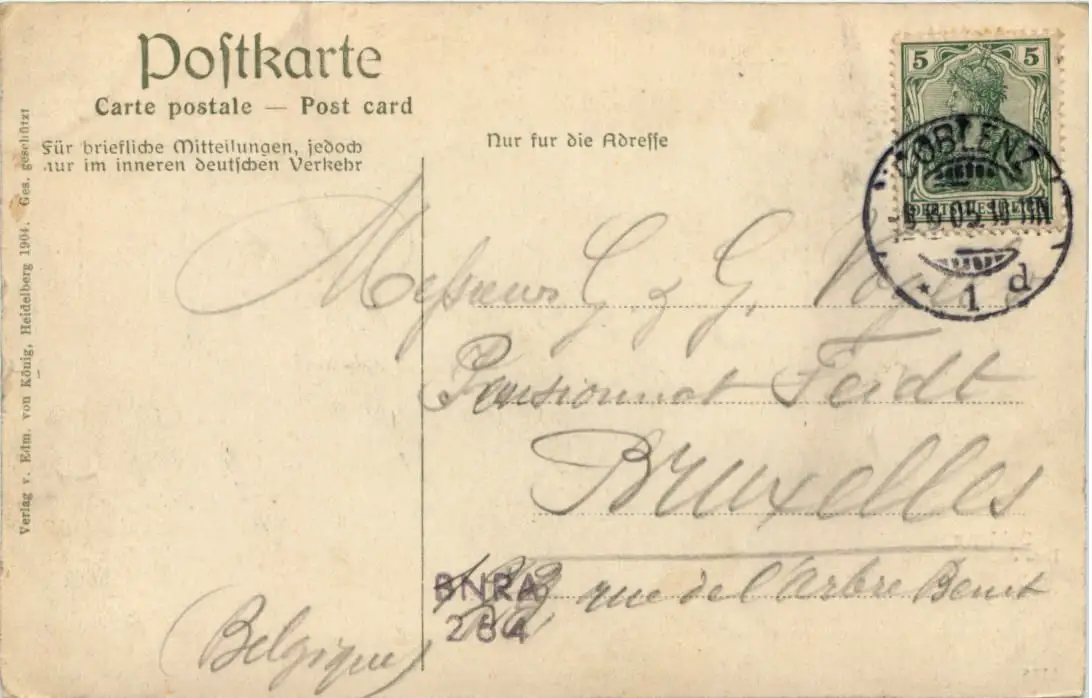 Postkarte
Carte postale — Post card
Für briefliche Mitteilungen, jedoch
nur im inneren deutschen Verkehr
Nur fur die Adresse
5 5
DEUTSCHES REICH
COBLENZ
* 1 d
Messieurs G & G,
Pensionnat Feidt
Bruxelles
rue de l'Arbre Benit
Belgique
BNRA
264
Verlag v. Edm. von König, Heidelberg 1904. Ges. geschützt